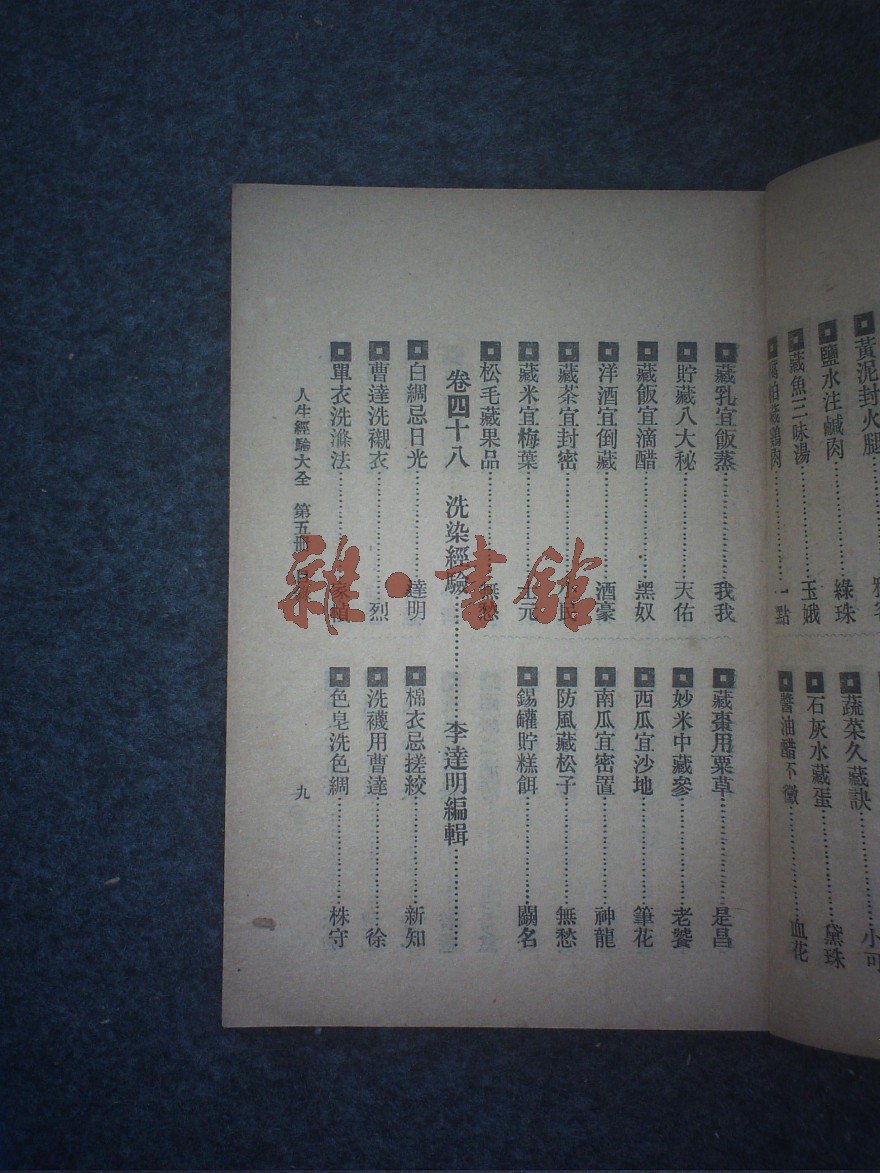 黃泥封火腿
鹽水注鹹肉……綠珠
藏魚三味湯……玉娥
藏鷄肉……一點
蔬菜久藏訣……小可
石灰水藏蛋……黛珠
醬油醋不黴……血花
藏乳宜飯蒸……我我
貯藏八大秘……天佑
藏飯宜滴醋……黑奴
洋酒宜倒藏……酒豪
藏茶宜封密……民
藏米宜梅葉……元
松毛藏果品……無愁
藏棗用粟草……是昌
妙米中藏參……老饕
西瓜宜沙地……筆花
南瓜宜密置……神龍
防風藏松子……無愁
錫罐貯糕餌……闕名
卷四十八 洗染經驗……李達明編輯……
白綢忌日光……達明
曹達洗襯衣……烈
單衣洗滌法……家
棉衣忌搓絞……新知
洗襪用曹達……徐
色皂洗色綢……株守
人生經驗大全 第五冊 目 九
雜·書館